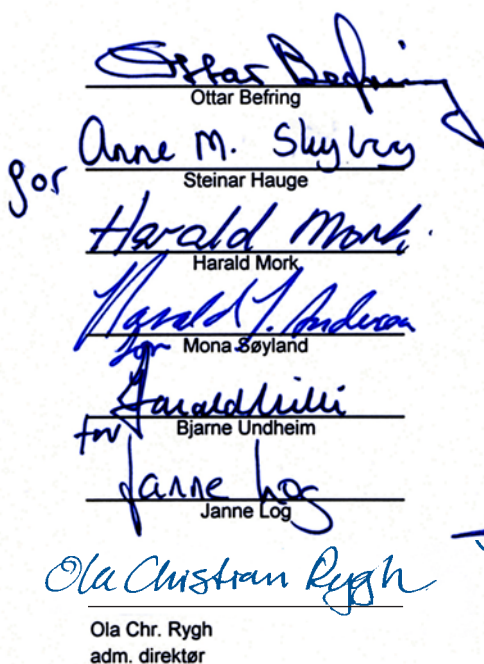 Ottar Befring
Ottar Befring
for Anne M. Skyberg
Steinar Hauge
Harald Mork.
Harald Mork
Harald
for Mona Søyland
for
Bjarne Undheim
Janne Log
Janne Log
Ola Christian Rygh
Ola Chr. Rygh
adm. direktør